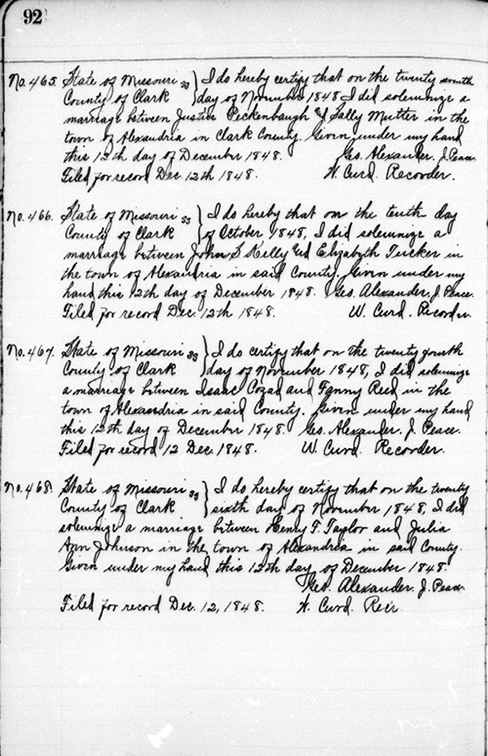 92
No. 465. State of Missouri ss } I do hereby certify that on the twenty
County of Clark } day of November 1848 I did solemnize a
marriage between Justus Peckenbaugh & Sally Mutter in the
town of Alexandria in Clark County. Given under my hand
this 12th day of December 1848. Geo. Alexander, J. Peace.
Filed for record Dec 12th 1848. W. Curd. Recorder.
No. 466. State of Missouri ss } I do hereby that on the tenth day
County of Clark } of October 1848, I did solemnize a
marriage between John S Kelly and Elizabyth Tucker in
the town of Alexandria in said County. Given under my
hand this 12th day of December 1848. Geo. Alexander, J. Peace.
Filed for record Dec. 12th 1848. W. Curd. Recorder.
No. 467. State of Missouri ss } I do certify that on the twenty fourth
County of Clark } day of November 1848, I did solemnize
a marriage between Isaac Cozad and Fanny Reed in the
town of Alexandria in said County. Given under my hand
this 12th day of December 1848. Geo. Alexander, J. Peace.
Filed for record 12 Dec 1848. W. Curd. Recorder.
No. 468. State of Missouri ss } I do hereby certify that on the twenty
County of Clark } sixth day of November 1848, I did
solemnize a marriage between Henry F. Taylor and Julia
Ann Johnson in the town of Alexandria in said County.
Given under my hand this 12th day of December 1848.
Geo. Alexander. J. Peace.
Filed for record Dec. 12, 1848. W. Curd. Rec'r.